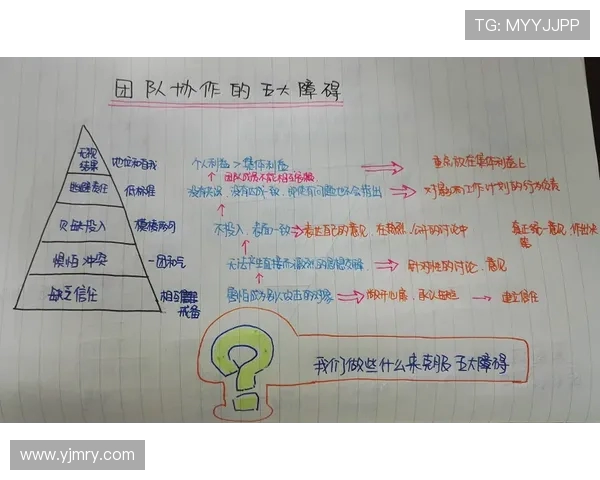 TG: MYYJJPP
团队协作的五大障碍
无视结果 地位和自我 个人利益 > 集体利益 重点放在集体利益上
团队成员不能相互
逃避责任 低标准 没有达成一致,即使有问题也不会指出 对影响工作计划的行为负责
欠缺投入 模棱两可 不投入,表面一致 表达自己的意见,在激烈、公开的讨论中 真正统一意见,作出决策
惧怕冲突 一团和气 无法产生直接而激烈的思想交锋 针对性的讨论、意见
缺乏信任 相互戒备 害怕成为别人攻击的对象 敞开心扉,承认缺陷 建立信任
我们做些什么来克服五大障碍
www.yjmry.com